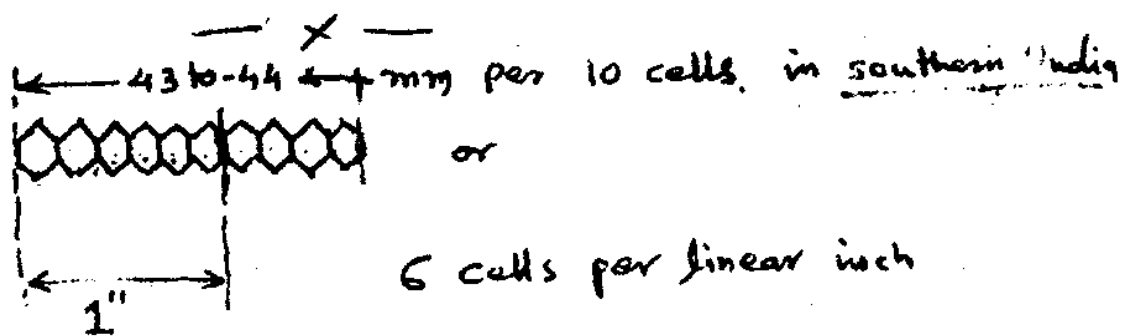 X
43 to 44 mm per 10 cells. in southern India
or
6 cells per linear inch
1"